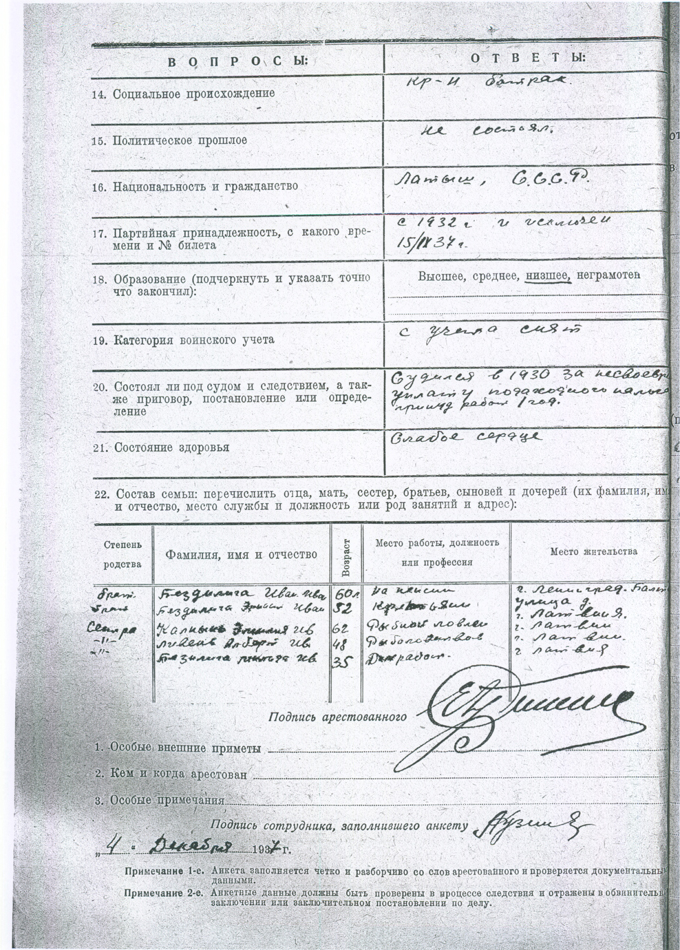 ВОПРОСЫ: ОТВЕТЫ:
14. Социальное происхождение кр-н батрак
15. Политическое прошлое не состоял.
16. Национальность и гражданство Латыш, С.С.С.Р.
17. Партийная принадлежность, с какого вре- с 1932 г и исключен
мени и № билета 15/IX 37 г.
18. Образование (подчеркнуть и указать точно Высшее, среднее, низшее, неграмотен
что закончил):
19. Категория воинского учета с учета снят
20. Состоял ли под судом и следствием, а так- Судился в 1930 за несвоевр
же приговор, постановление или опреде- уплату подоходного налога
ление принуд работ 1 год.
21. Состояние здоровья Слабое сердце
22. Состав семьи: перечислить отца, мать, сестер, братьев, сыновей и дочерей (их фамилия, имя
и отчество, место службы и должность или род занятий и адрес):
Степень родства Фамилия, имя и отчество Возраст Место работы, должность или профессия Место жительства
брат Иван Ив 60л на пенсии г. Ленинград.
улица д.
брат Иван 52 г. Латвия.
Сестра Ив 62 Рыбной ловлей г. Латвии
-"- Альберт Ив 48 г. Латвии.
-"- Ив 35 г Латвия
Подпись арестованного
1. Особые внешние приметы
2. Кем и когда арестован
3. Особые примечания
Подпись сотрудника, заполнившего анкету
„4" Декабря 1937 г.
Примечание 1-е. Анкета заполняется четко и разборчиво со слов арестованного и проверяется документальны
данными.
Примечание 2-е. Анкетные данные должны быть проверены в процессе следствия и отражены в обвинитель
заключении или заключительном постановлении по делу.